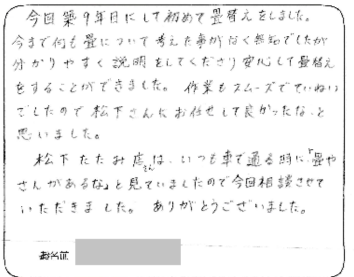 今回築9年目にして初めて畳替えをしました。
今まで何も畳について考えた事がなく無知でしたが
分かりやすく説明をしてくださり安心して畳替え
をすることができました。作業もスムーズでていねい
でしたので松下さんにお任せして良かったな、と
思いました。
松下たたみ店さんは、いつも車で通る時に、「畳や
さんがあるな」と見ていましたので今回相談させて
いただきました。ありがとうございました。
お名前